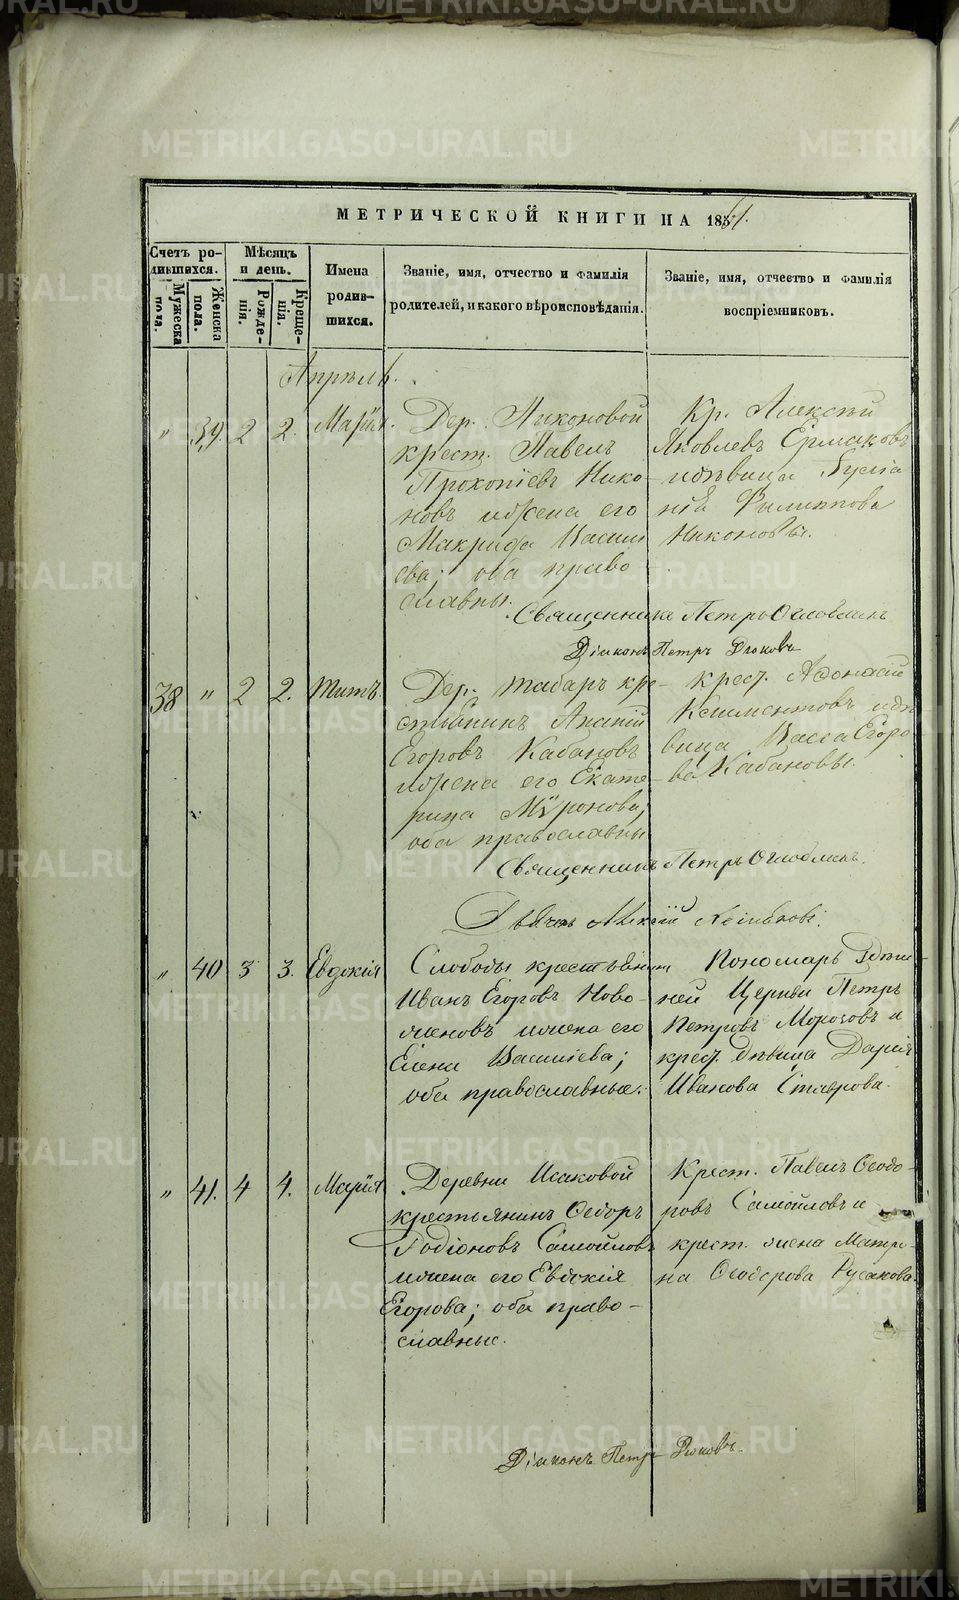 МЕТРИЧЕСКОЙ КНИГИ НА 1861.
Счетъ родившихся.
Мужеска пола.
Женска пола.
Мѣсяцъ и день.
Рожденія.
Крещенія.
Имена родившихся.
Званіе, имя, отчество и фамилія
родителей, и какого вѣроисповѣданія.
Званіе, имя, отчество и фамилія
воспріемниковъ.
Апрѣль.
„ 39 2 2. Марія.
Дер. Никоновой
крест. Павелъ
Прокопіевъ Нико
новъ и жена его
Макрида Васил
ева; оба право
славны.
Кр. Алексѣй
Яковлевъ Ермаковъ
и дѣвица
Филиппова
Никоновы.
Священникъ Петръ
Діаконъ Петръ
38 „ 2 2. Титъ.
Дер. Табаръ кре-
стьянинъ Ананій
Егоровъ Кабановъ
и жена его Екате-
рина Мѵронова,
оба православны
крест. Афонасій
Климентовъ и дѣ-
вица Васса Егоро
ва Кабановы.
Священникъ Петръ
Алексій
„ 40 3 3. Евдокія
Слободы крестьянинъ
Иванъ Егоровъ Ново-
селовъ и жена его
Елена Василіева;
оба православные.
Пономарь здѣш-
ней Церкви Петръ
Петровъ Морозовъ и
крест. дѣвица Дарія
Иванова
„ 41. 4 4. Марія
Деревни Исаковой
крестьянинъ Ѳеодоръ
Родіоновъ Самойловъ
и жена его Евдокія
Егорова; оба право-
славные.
Крест. Павелъ Ѳеодо-
ровъ Самойловъ и
крест. жена Матро-
на Ѳеодорова Русакова.
Діаконъ Петръ
METRIKI.GASO-URAL.RU